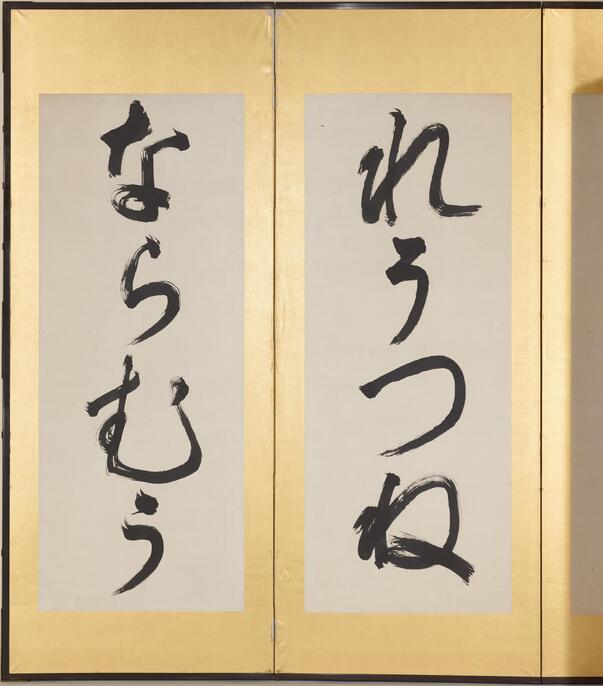 れうつね
ならむう